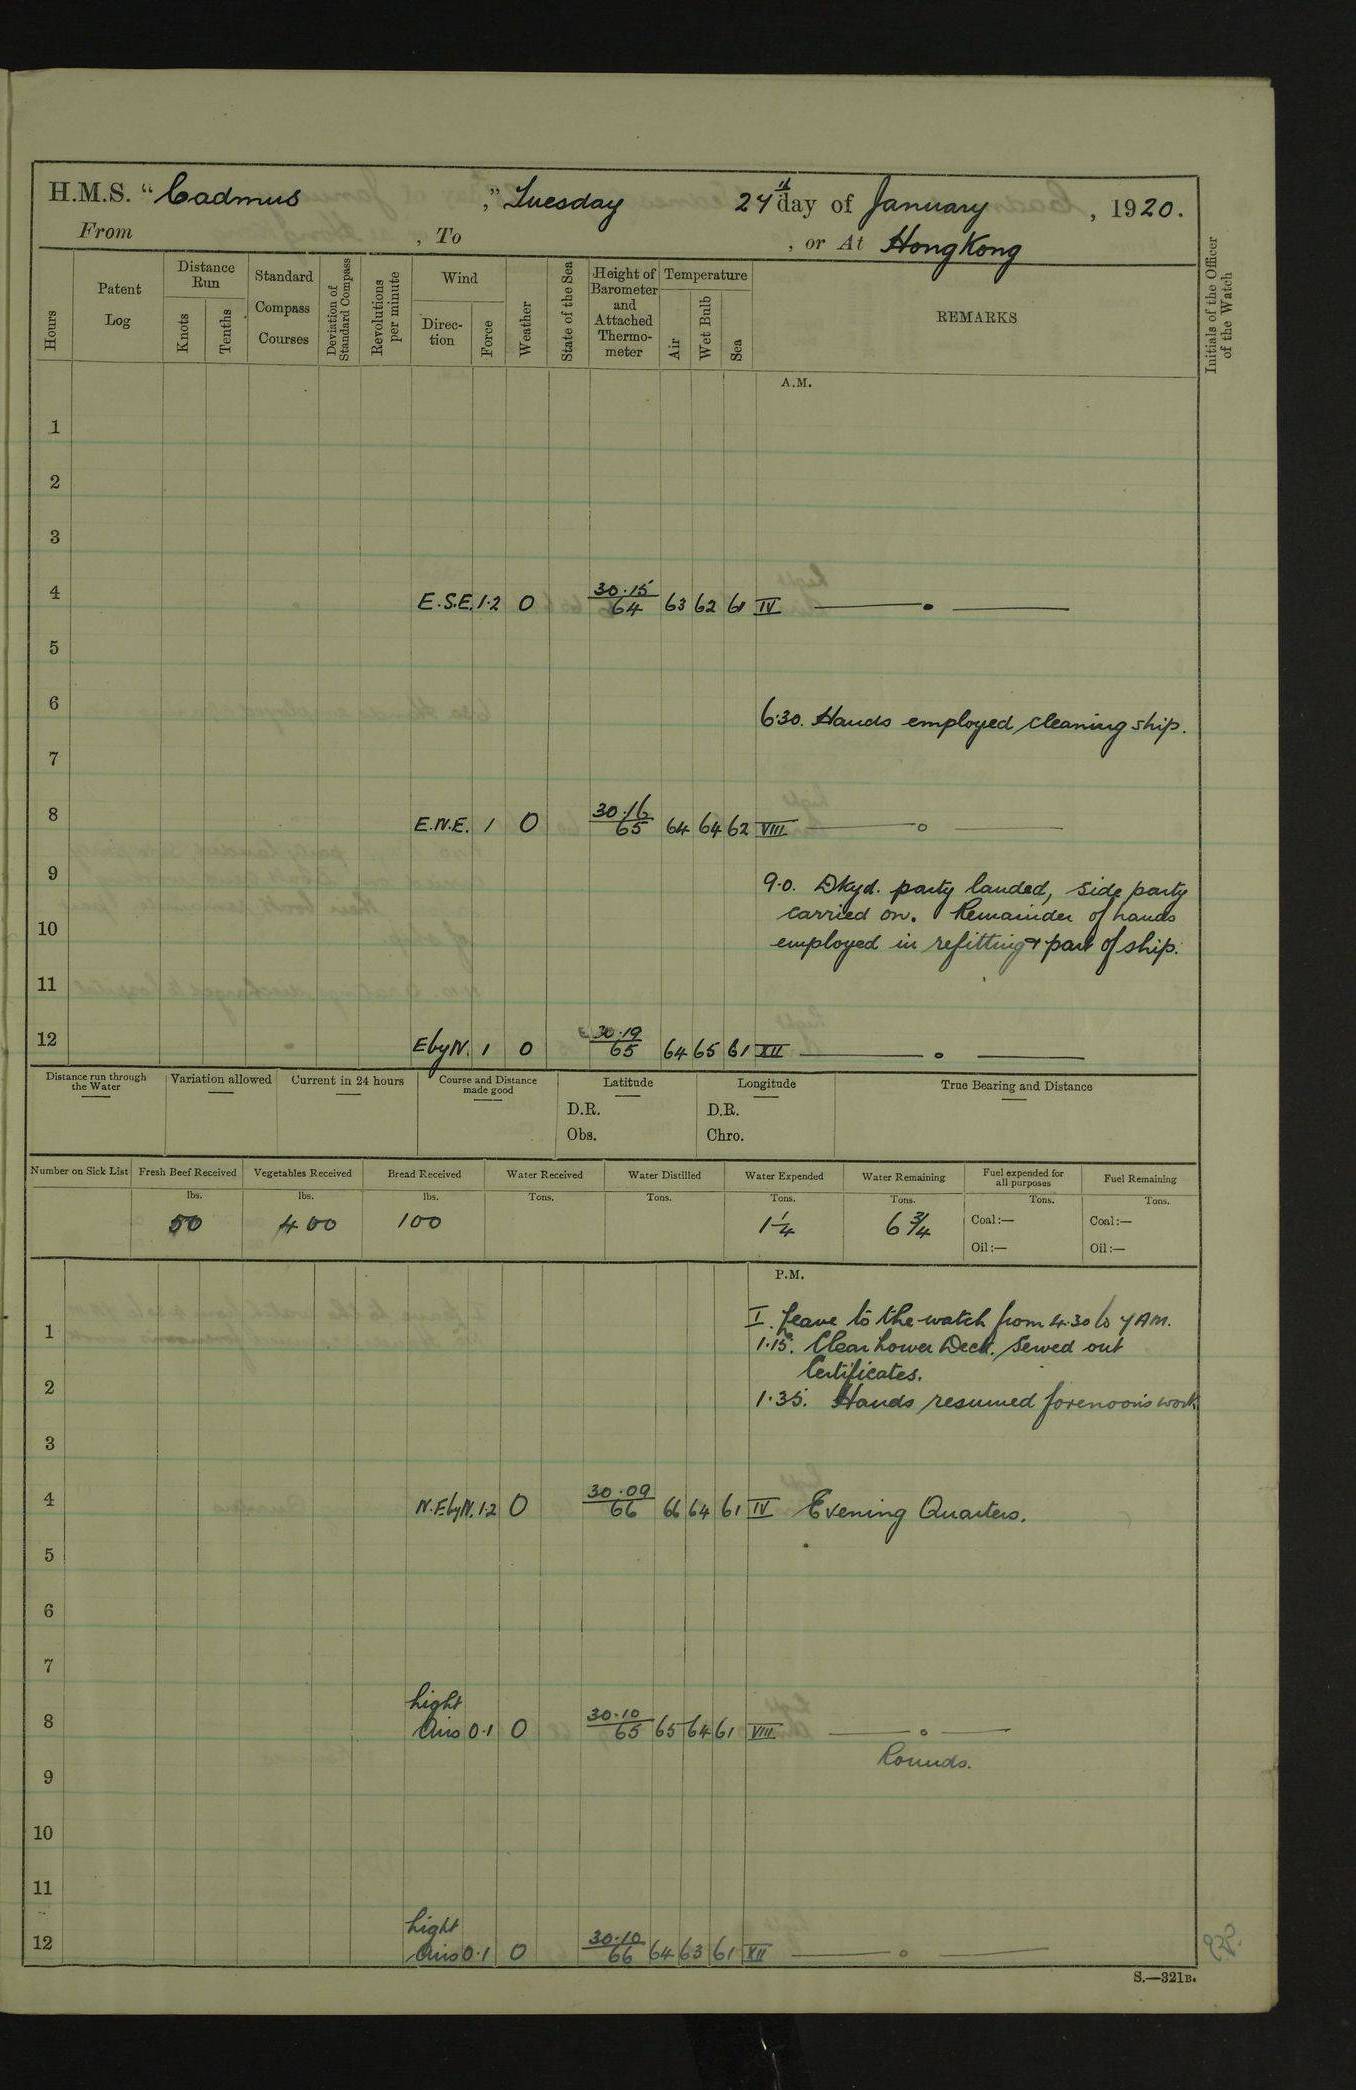 H.M.S. “Cadmus ,” Tuesday 27th day of January , 1920.
From , To , or At HongKong
Hours
Patent Log
Distance Run
Knots
Tenths
Standard Compass Courses
Deviation of Standard Compass
Revolutions per minute
Wind
Direc-tion
Force
Weather
State of the Sea
Height of Barometer and Attached Thermo-meter
Temperature
Air
Wet Bulb
Sea
REMARKS
Initials of the Officer of the Watch
A.M.
1
2
3
4 E.S.E. 1.2 O 30.15/64 63 62 61 IV
5
6
6.30. Hands employed cleaning ship.
7
8 E.N.E. 1 O 30.16/65 64 64 62 VIII
9
9.0. Dkyd. party landed, side party
carried on. Remainder of hands
10
employed in refitting & part of ship.
11
12 E by N. 1 O 30.19/65 64 65 61 XII
Distance run through the Water
Variation allowed
Current in 24 hours
Course and Distance made good
Latitude
D.R.
Obs.
Longitude
D.R.
Chro.
True Bearing and Distance
Number on Sick List
Fresh Beef Received lbs. 50
Vegetables Received lbs. 400
Bread Received lbs. 100
Water Received Tons.
Water Distilled Tons.
Water Expended Tons. 1 1/4
Water Remaining Tons. 6 3/4
Fuel expended for all purposes Tons.
Coal:—
Oil:—
Fuel Remaining Tons.
Coal:—
Oil:—
P.M.
I. Leave to the watch from 4.30 to 7 AM.
1
1.15. Clear Lower Deck. Served out
Certificates.
2
1.35. Hands resumed forenoon's work
3
4 N.E by N. 1.2 O 30.09/66 66 64 61 IV Evening Quarters.
5
6
7
Light
8 Airs 0.1 O 30.10/65 65 64 61 VIII
Rounds.
9
10
11
Light
12 Airs 0.1 O 30.10/66 64 63 61 XII
S.—321B.